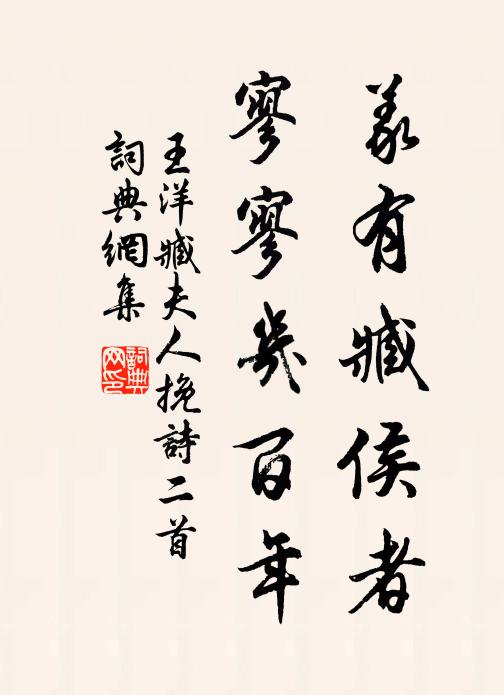 義有臧侯者
寥寥幾百年
王洋臧夫人挽詩二首
詞典網集
詞典
网印